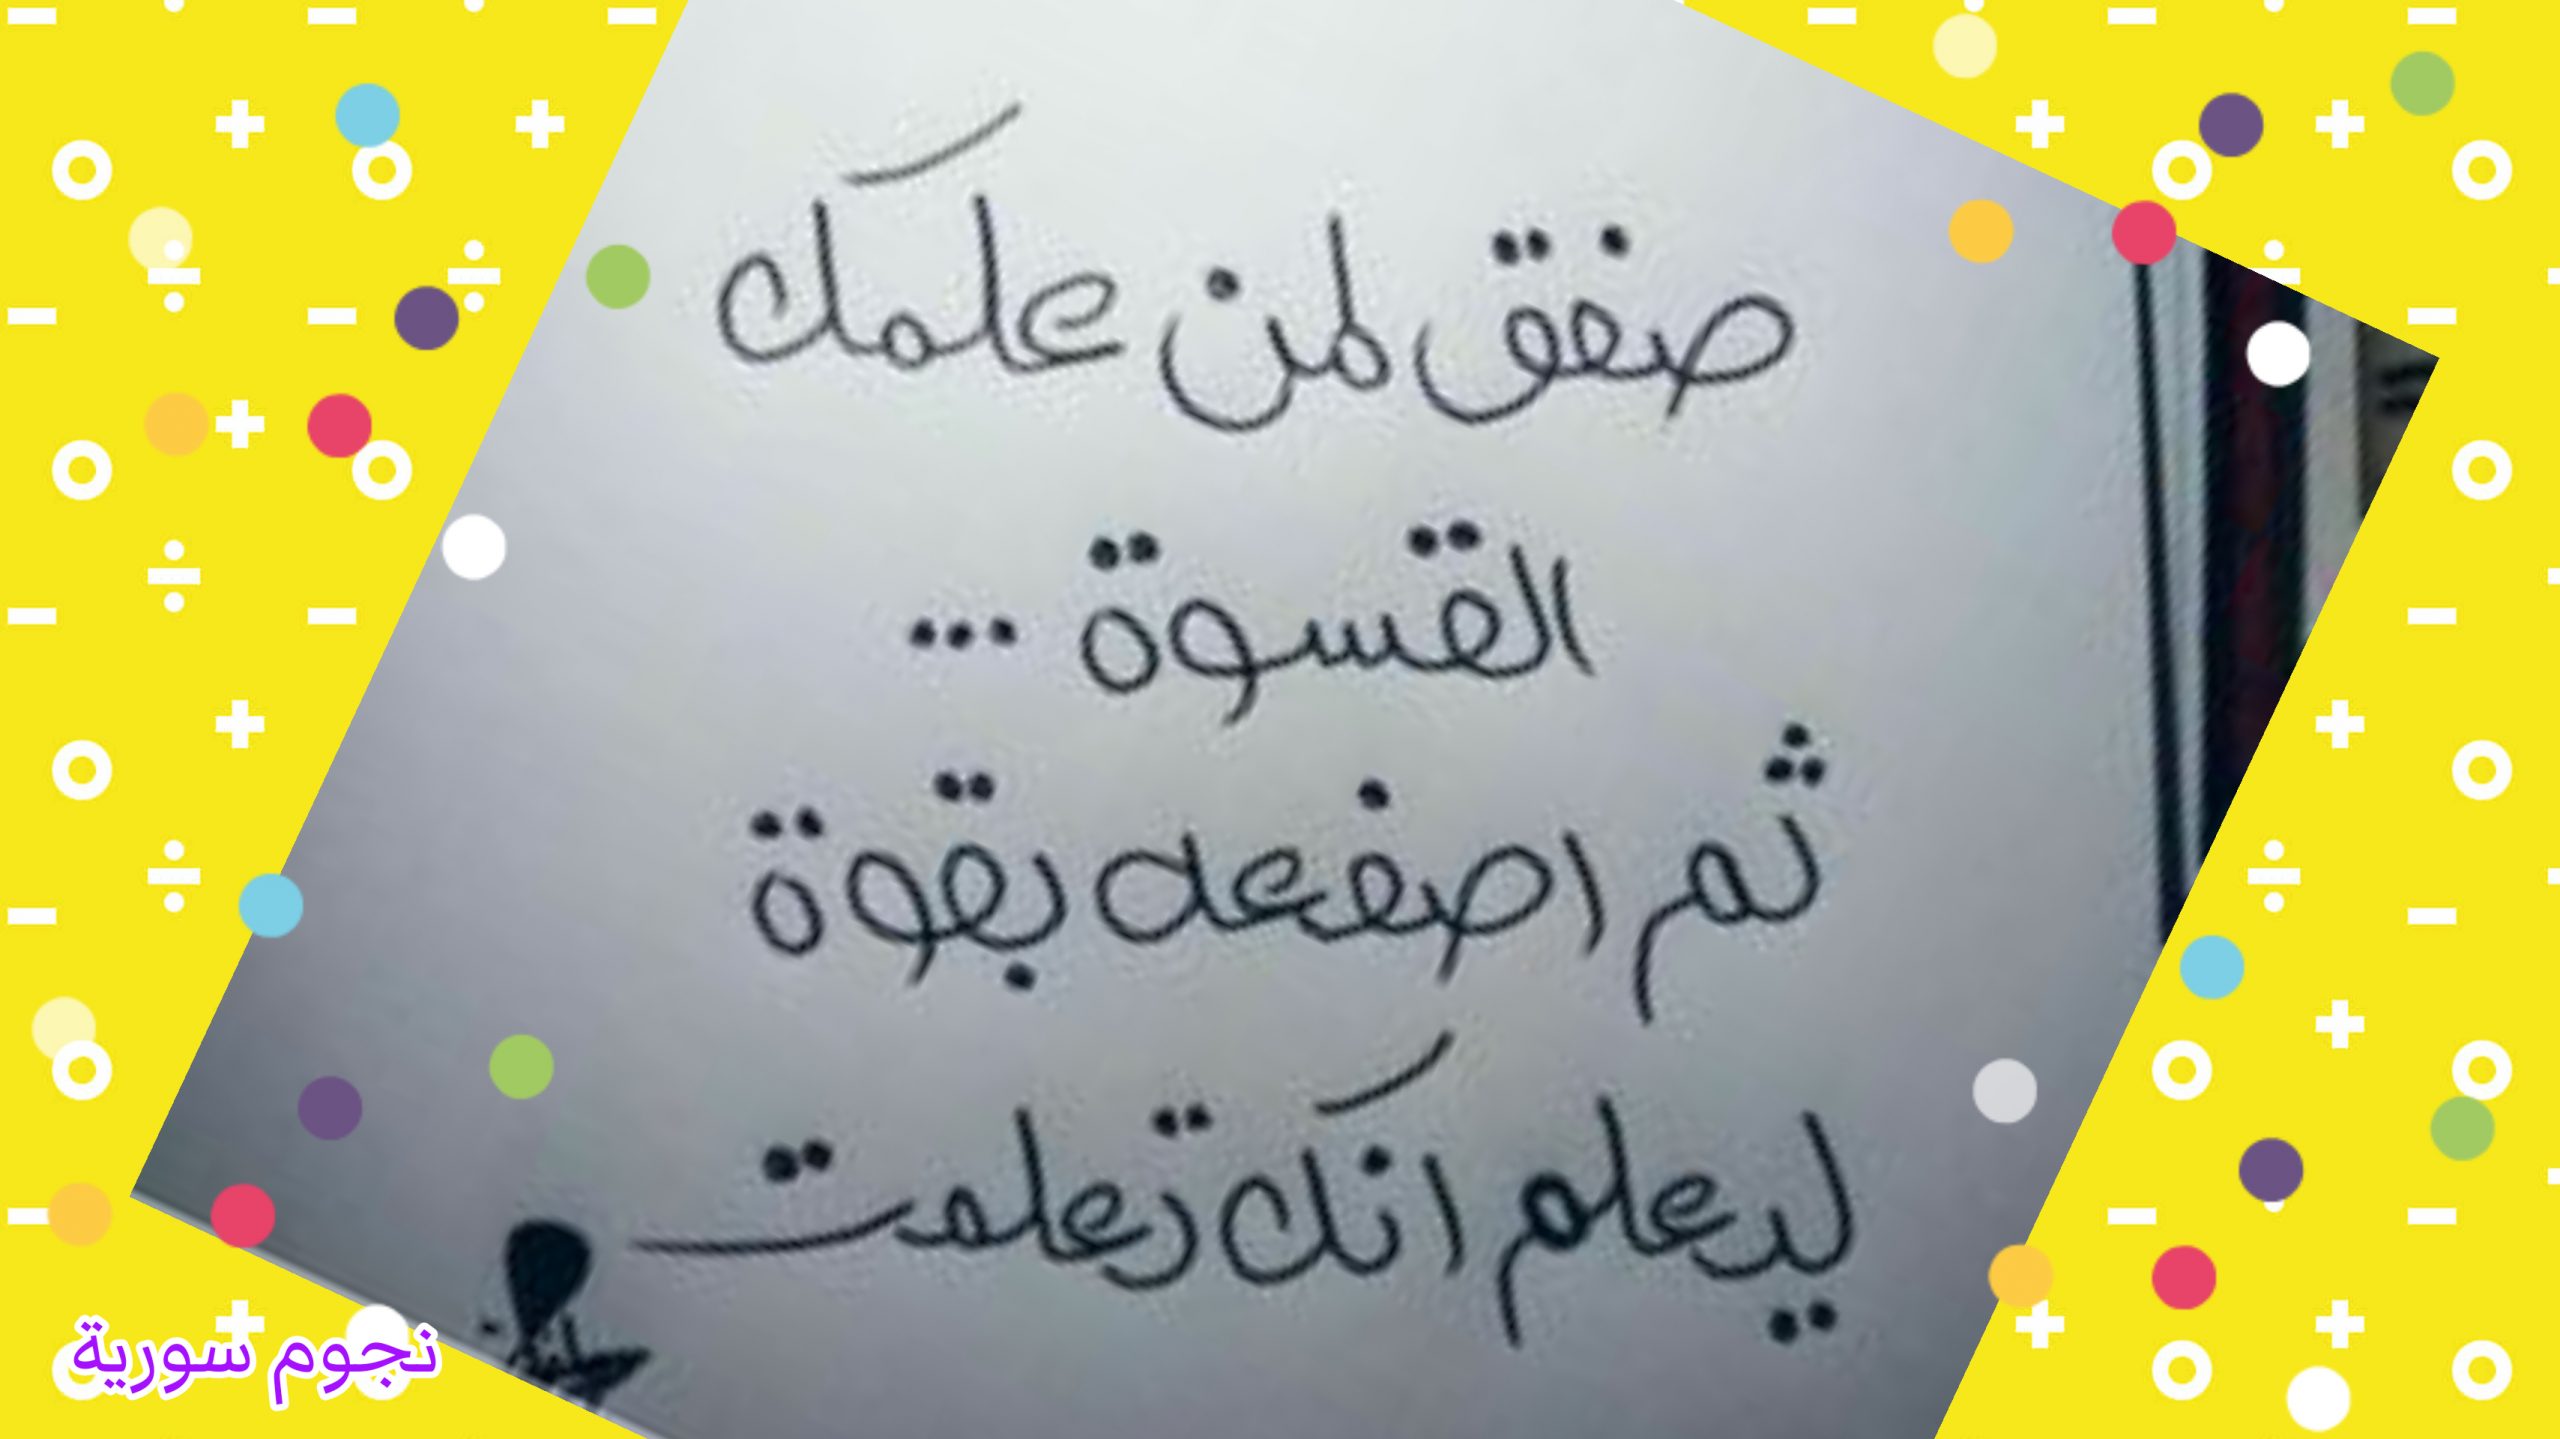 صفق لمن علمك
القسوة ...
ثم اصفعه بقوة
ليعلم انك تعلمت
نجوم سورية